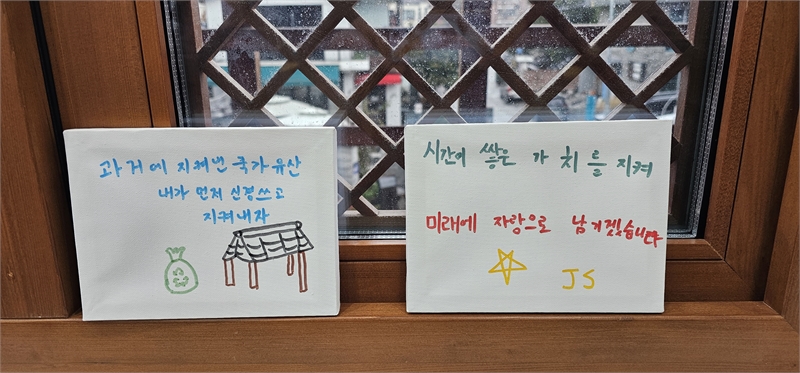 과거에 지켜낸 국가유산
내가 먼저 신경쓰고
지켜내자
시간이 쌓은 가치를 지켜
미래에 자랑으로 남기겠습니다
JS